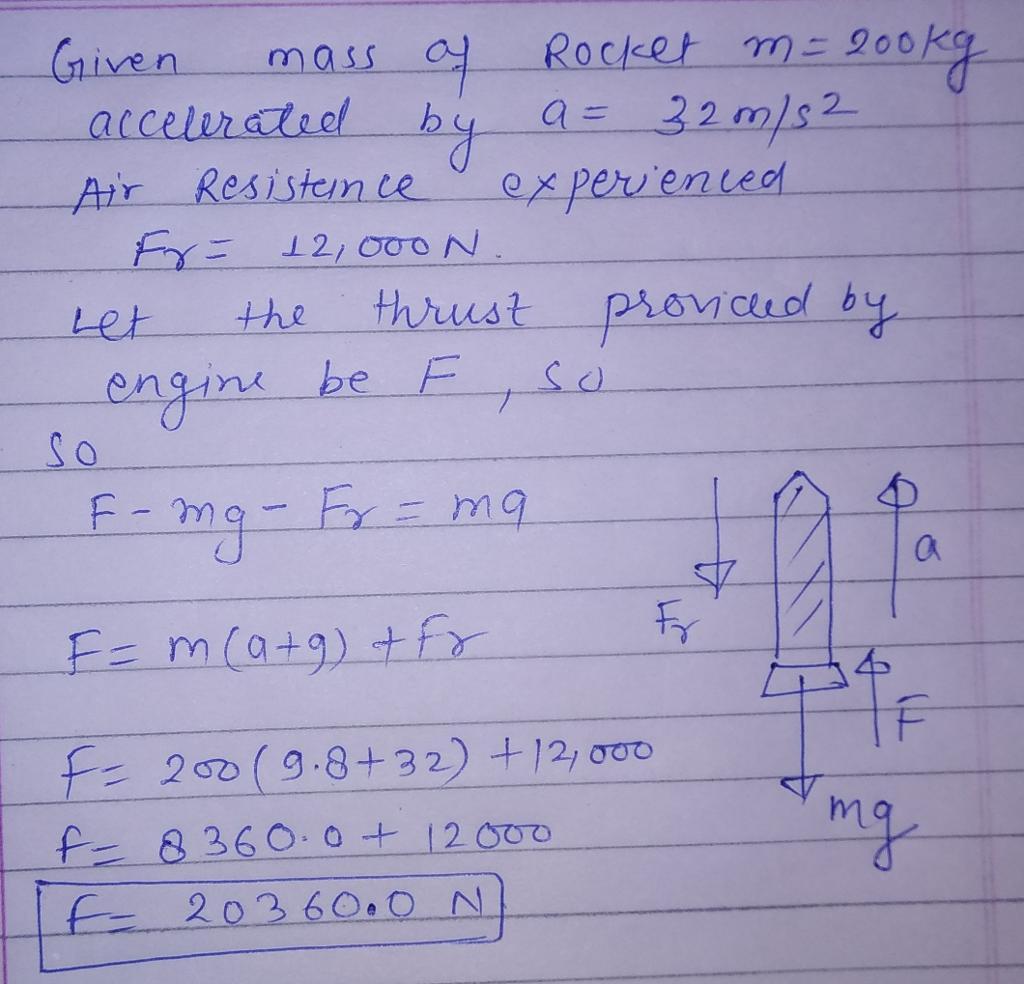 Given mass of Rocket m = 200kg
accelerated by a = 32 m/s2
Air Resistance experienced
Fr = 12,000 N.
Let the thrust provided by
engine be F, so
so
F - mg - Fr = ma
a
Fr
F = m(a+g) + Fr
F
F = 200(9.8+32) + 12,000
mg
f = 8360.0 + 12000
f = 20360.0 N